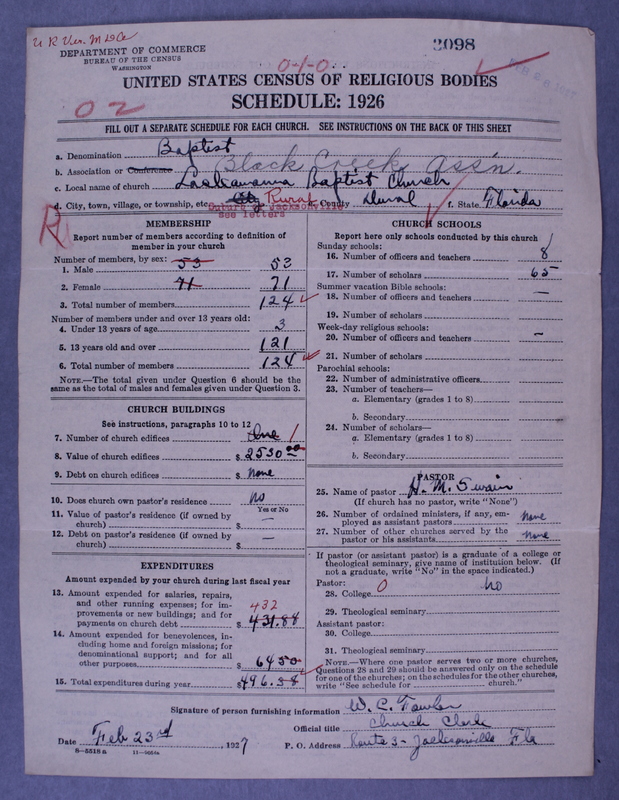 DEPARTMENT OF COMMERCE
BUREAU OF THE CENSUS
WASHINGTON
3098
0-1-0
UNITED STATES CENSUS OF RELIGIOUS BODIES
02
SCHEDULE: 1926
FILL OUT A SEPARATE SCHEDULE FOR EACH CHURCH. SEE INSTRUCTIONS ON THE BACK OF THIS SHEET
a. Denomination Baptist
b. Association or Conference Black Creek Ass'n.
c. Local name of church Lackawanna Baptist Church
d. City, town, village, or township, etc. City Rural e. County Duval f. State Florida
Suburb of Jacksonville
see letters
R
MEMBERSHIP
Report number of members according to definition of member in your church
Number of members, by sex:
1. Male 53 53
2. Female 71 71
3. Total number of members 124
Number of members under and over 13 years old:
4. Under 13 years of age 3
5. 13 years old and over 121
6. Total number of members 124
NOTE.—The total given under Question 6 should be the same as the total of males and females given under Question 3.
CHURCH BUILDINGS
See instructions, paragraphs 10 to 12
7. Number of church edifices One 1
8. Value of church edifices $2530.00
9. Debt on church edifices $ None
10. Does church own pastor's residence No
Yes or No
11. Value of pastor's residence (if owned by church) $ —
12. Debt on pastor's residence (if owned by church) $ —
EXPENDITURES
Amount expended by your church during last fiscal year
13. Amount expended for salaries, repairs, and other running expenses; for improvements or new buildings; and for payments on church debt $ 431.88
432
14. Amount expended for benevolences, including home and foreign missions; for denominational support; and for all other purposes $ 64.50
15. Total expenditures during year $496.38
CHURCH SCHOOLS
Report here only schools conducted by this church
Sunday schools:
16. Number of officers and teachers 8
17. Number of scholars 65
Summer vacation Bible schools:
18. Number of officers and teachers —
19. Number of scholars
Week-day religious schools:
20. Number of officers and teachers —
21. Number of scholars
Parochial schools:
22. Number of administrative officers
23. Number of teachers—
a. Elementary (grades 1 to 8)
b. Secondary
24. Number of scholars—
a. Elementary (grades 1 to 8)
b. Secondary
PASTOR
25. Name of pastor H. M. Swain
(If church has no pastor, write "None")
26. Number of ordained ministers, if any, employed as assistant pastors None
27. Number of other churches served by the pastor or his assistants None
If pastor (or assistant pastor) is a graduate of a college or theological seminary, give name of institution below. (If not a graduate, write "No" in the space indicated.)
Pastor:
28. College 0 No
29. Theological seminary
Assistant pastor:
30. College
31. Theological seminary
NOTE.—Where one pastor serves two or more churches, Questions 28 and 29 should be answered only on the schedule for one of the churches; on the schedules for the other churches, write "See schedule for church."
Signature of person furnishing information W. C. Fowler
Official title Church Clerk
Date Feb 23rd, 1927 P. O. Address Route 3 - Jacksonville Fla
8-5518a